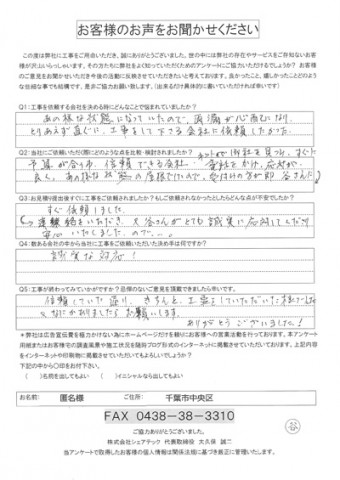 お客様のお声をお聞かせください
この度は弊社に工事をご用命いただき、誠にありがとうございました。世の中には弊社の存在やサービスをご存知ないお客
様が沢山いらっしゃいます。その方たちに弊社をよく知っていただくためのアンケートにご協力いただけるでしょうか? お客様
のご意見をお聞かせいただき今後の活動に反映させていただきたいと考えております。良かったこと、嬉しかったことどのよう
な些細な事でも結構です。是非ご協力お願い致します。(出来るだけ具体的に書いていただければ幸いです)
Q1:工事を依頼する会社を決める時にどんなことで悩まれていましたか?
あの様な状態になっていたので、雨漏が心配になり、
とりあえず直ぐに、工事をして下さる会社に依頼したかった。
Q2:当社にご依頼いただく際にどのような点を比較・検討されましたか?
予算が合う事、信頼できる会社
良く、あの様な状態の屋根でしたので、
Q3:お見積り提出後すぐにご依頼されましたか?もしご依頼されなかったとしたらどんな点が不安でしたか?
すぐ依頼しました。
大谷さんがとても誠実に応対してくださり
安心いたしましたので、
Q4:数ある会社の中から当社に工事をご依頼いただいた決め手は何ですか?
誠実な対応!
Q5:工事が終わってみていかがですか?忌憚のないご意見を頂戴できましたら幸いです。
信頼していた通り、きちんと工事をしていただいた
又なにかありましたらお願いします。
ありがとうございました!
*弊社は広告宣伝費を極力かけない為にホームページだけを頼りにお客様への営業活動を行っております。本アンケート
用紙またはお客様での調査風景や施工状況を随時ブログ形式のインターネットに掲載させていただいております。上記内容
をインターネットや印刷物に掲載させていただいてもよろしいでしょうか?
下記の中から〇印をお付け下さい。
( )名前を出してもよい ( )イニシャルなら出してもよい
お名前: 匿名様 ご住所: 千葉市中央区
FAX 0438-38-3310
ご協力ありがとうございました。
株式会社シェアテック 代表取締役 大久保 誠二
当アンケートで取得したお客様の個人情報は関係法規に基づき厳正に管理いたします。